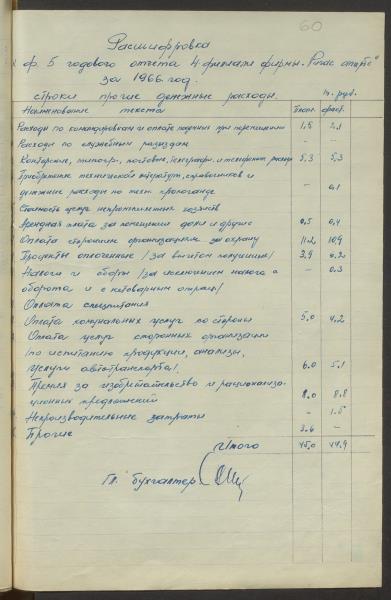 60
Расшифровка
ф. 5 годового отчета 4 филиала фирмы "Ригас апгербс"
за 1966 год.
строки прочие денежные расходы. т. руб.
Наименование текста план. факт.
Расходы по командировкам и оплате подъемных при перемещении 1,5 2,1
Расходы по служебным разъездам - -
Канторские, типогр., почтовые, телеграфн. и телефонн. расходы 5,3 5,3
Приобретение технической литературы, справочников и
денежные расходы по техн. пропаганде - 0,1
Стоимость услуг непромышленных хозяйств
Арендная плата за помещения доки и другие 0,5 0,4
Оплата сторонним организациям за охрану 11.2 10,9
Проценты оплаченные /за вычетом полученных/ 3,9 0.2
Налоги и сборы /за исключением налога с - 0.3
оборота и с нетоварным операц/
Оплата спецпитания
Оплата комунальных услуг со стороны 5.0 4.2
Оплата услуг сторонних организации
/по испытанию продукции, анализы,
Услуги автотранспорта/. 6.0 5,1
Премия за изобретательство и рационализа-
ционных предложений 8.0 8.8
Непроизводительные затраты - 1.5
Прочие 3.6 -
Итого 45,0 44.9
Гл. бухгалтер